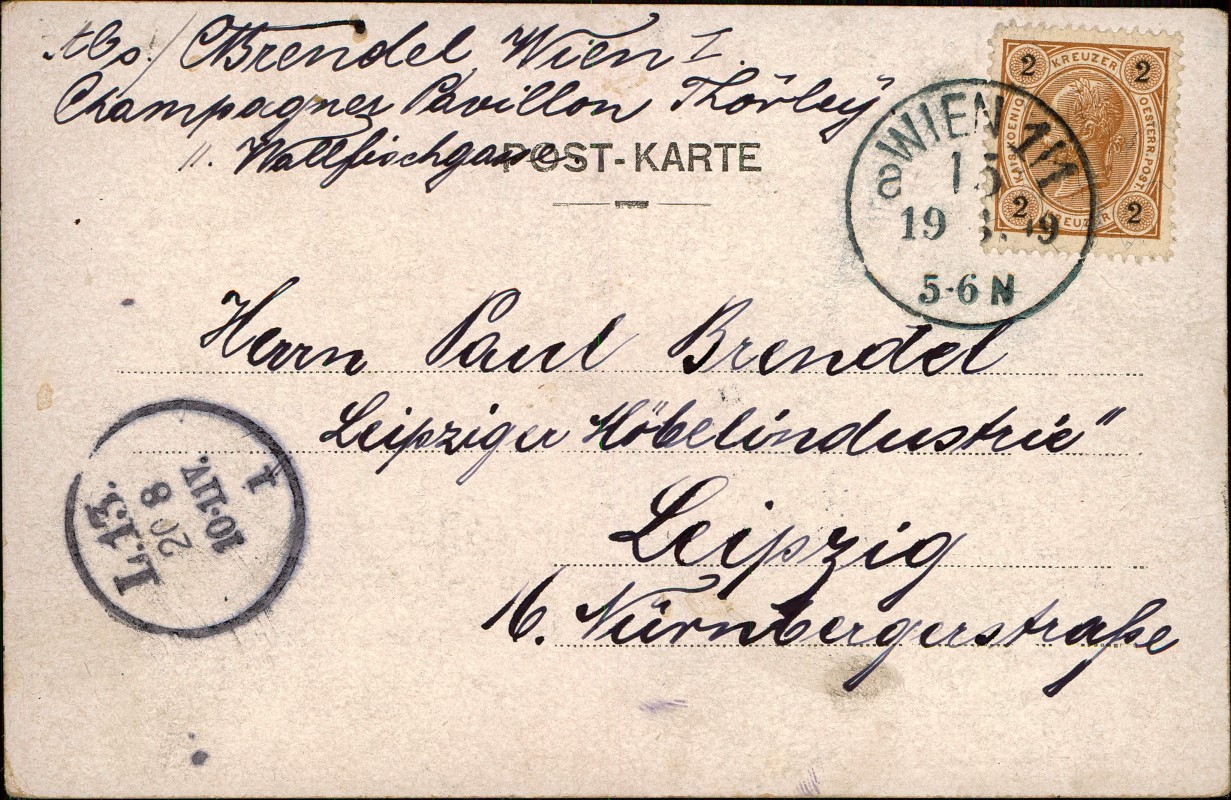 Abs./ CBrendel Wien I.
Champagner Pavillon Thörley
11. Wallfischgasse.
POST-KARTE
2 KREUZER 2
KAIS. KOENIG. OESTERR. POST
2 KREUZER 2
WIEN 1/1
15
19 8. 99
5-6 N
Herrn Paul Brendel
Leipziger Möbelindustrie"
Leipzig
16. Nürnbergerstraße
L. 13.
20 8
10-11V.